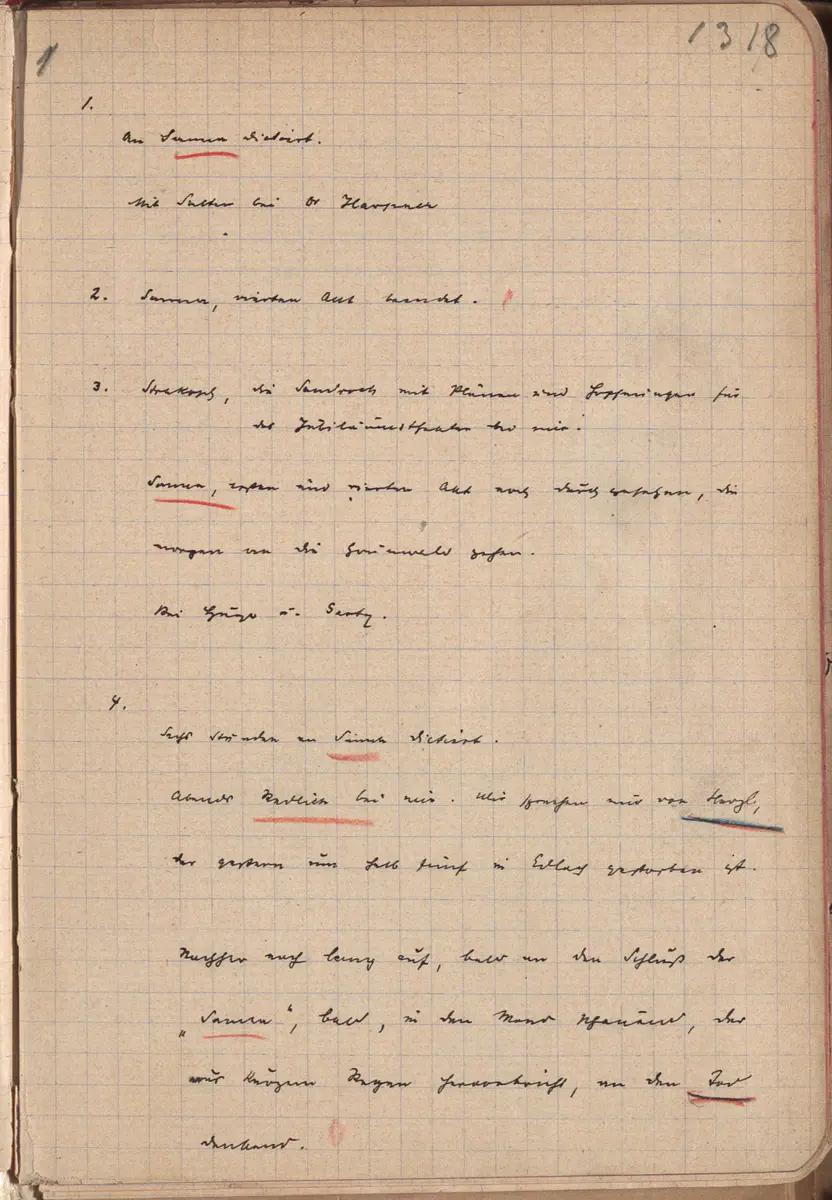 1
1318
1.
An Sanna dictirt.
Mit Salten bei Dr Harpner
2. Sanna, vierten Akt beendet.
3. Strakosch, die Sandrock mit Plänen und Hoffnungen für
das Jubiläumstheater bei mir.
Sanna, ersten und vierten Akt noch durchgesehen, die
morgen an die Grünwald gehen.
Bei Hugo u. Gerty.
4.
Sechs Stunden an Sanna dictirt.
Abends Redlich bei mir. Wir sprechen nur von Herzl,
der gestern um halb fünf in Edlach gestorben ist.
Nachher noch lang auf, bald an den Schluß der
„Sanna“, bald, in den Mond schauend, der
aus kurzem Regen hervorbricht, an den Tod
denkend.